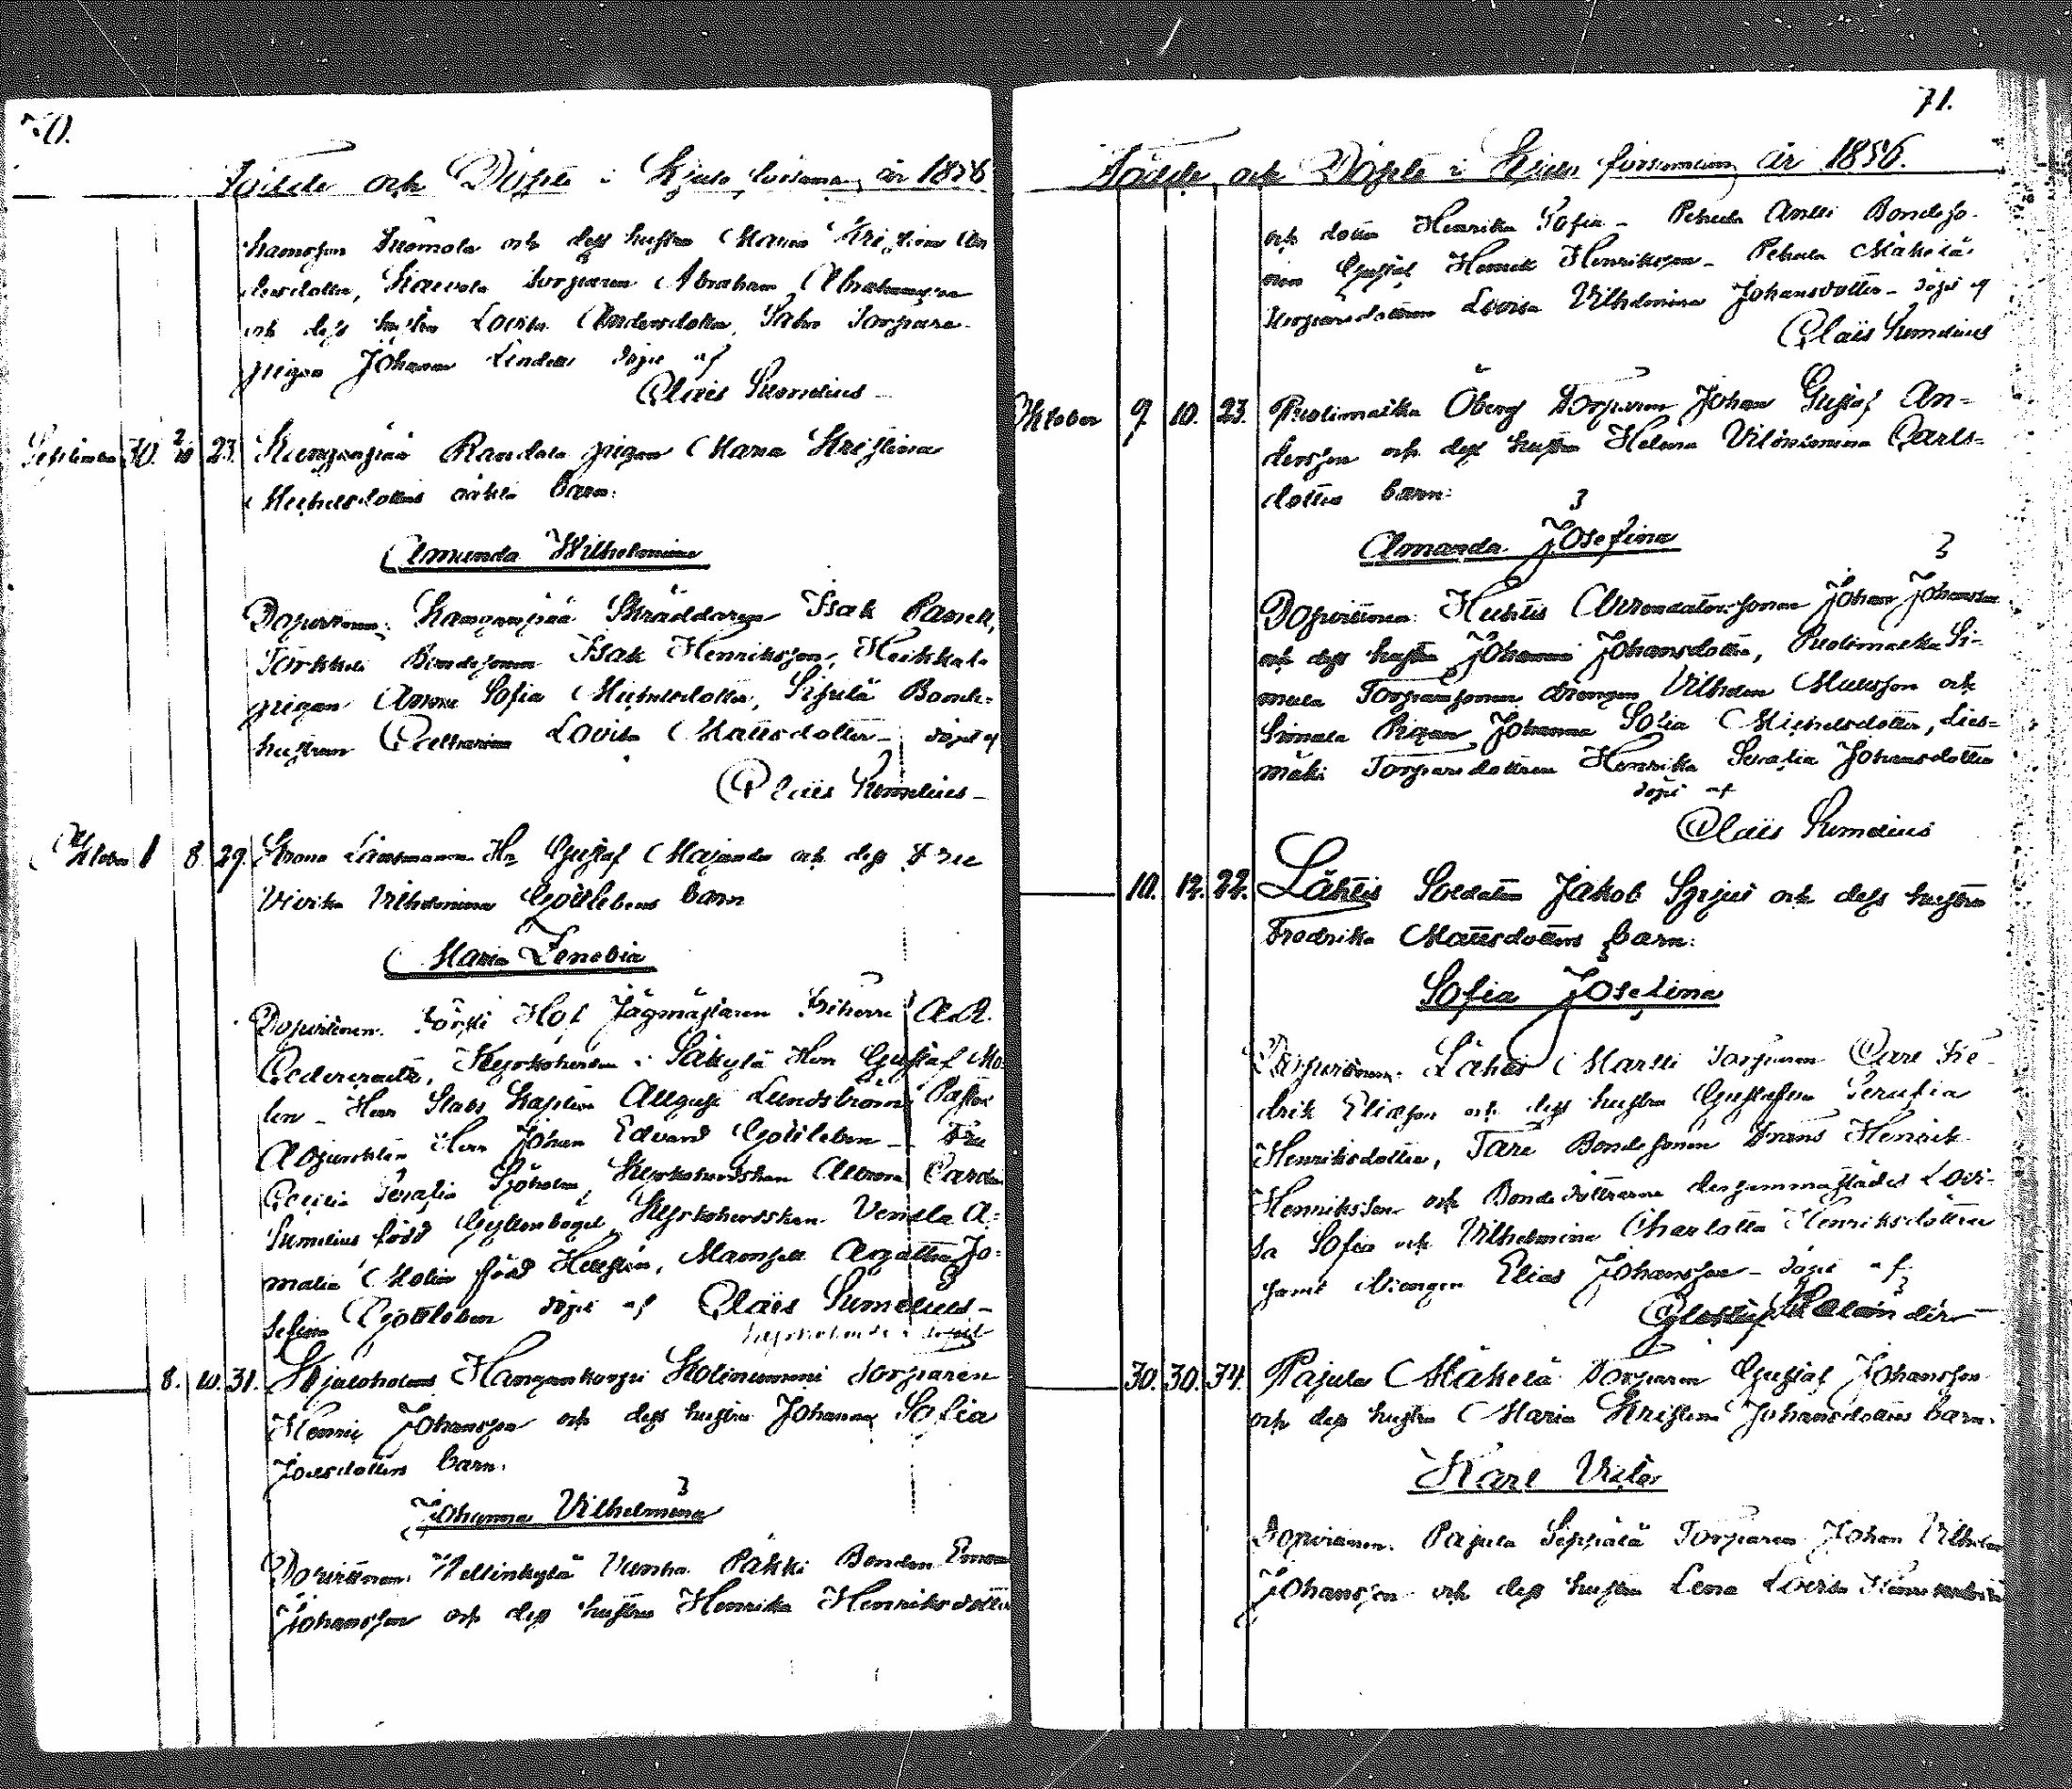 70.
Födde och Döpte i Kjulo församl. år 1856
hamsson Tuomola och dess hustru Maria Kristina An
dersdotter, Torparen Abraham Abrahamsson
och dess hustru Lovisa Andersdotter, Torpare-
pigan Johanna döpt af
Claës Sumelius
September 30. 2/10 23. Kungenpää Randala pigan Maria Kristina
Michelsdotters oäkta barn:
Amanda Wilhelmina
Dopvittnen: Skräddaren Isak
Bondesonen Isak Henriksson, Heikkala
pigan Anna Sofia Michelsdotter, Sipilä Bonde-
hustrun Catharina Lovisa Mattsdotter döpt af
Claës Sumelius
Oktober 1 8. 29. Krono Länsmannen Hr Gustaf Majander och dess Fru
Vivika Vilhelmina Gottlebens barn
Maria Zenobia
Dopvittnen: Hof Jägmästaren Friherre A.A.
Cedercreutz, Kyrkoherden i Säkylä Herr Gustaf Mo-
lin Herr Stabs Kapten August Lundström Pastors
Adjunkten Herr Johan Edvard Gottleben Fru
Cecilia Serafia Sjöholm, Kyrkoherdskan Aurora Carol.
Sumelius född Gyllenbögel, Kyrkoherdskan Vendla A-
malia Molin född Hellsten, Mamsell Agatha Jo-
sefina Gottleben döpt af Claës Sumelius
8. 10. 31. Kjuloholms Hangankorpi Kolinummi Torparen
Henric Johansson och dess hustru Johanna Sofia
Joelsdotters barn.
Johanna Vilhelmina
Dopvittnen: Vellinkylä Vanha Päkki Bonden
Johansson och dess hustru Henrika Henriksdotter
71.
Födde och Döpte i Kjulo församling år 1856.
och dotter Henrika Sofia Pehula Antti Bondeso-
nen Gustaf Henrik Henriksson Pehula Mäkelä
Torparedottren Lovisa Vilhelmina Johansdotter döpt af
Claës Sumelius
Oktober 9. 10. 23. Puolimatka Öberg Torparen Johan Gustaf An-
dersson och dess hustru Helena Vilhelmina Carls-
dotters barn:
Amanda Josefina
Dopvittnen: Huhtis Arrendatorssonen Johan Johansson
och dess hustru Johanna Johansdotter, Puolimatka Si-
mula Torparesonen drengen Vilhelm Mattsson och
Simula Pigan Johanna Sofia Michelsdotter, Lies-
mäki Torparedottren Henrika Serafia Johansdotter
döpt af
Claës Sumelius
10. 12. 22. Lähtis Soldaten Jakob Spjut och dess hustru
Fredrika Mattsdotters barn:
Sofia Josefina
Dopvittnen: Lähtis Martti Torparen Carl Fre-
drik Eliasson och dess hustru Gustafva Serafia
Henriksdotter, Tare Bondesonen Frans Henrik
Henriksson och Bondedöttrarne dersammastädes Lovi-
sa Sofia och Vilhelmina Charlotta Henriksdotter
samt drengen Elias Johansson döpt af
30. 30. 34. Pajula Mäkelä Torparen Gustaf Johansson
och dess hustru Maria Kristina Johansdotters barn.
Karl Victor
Dopvittnen: Pajula Seppälä Torparen Johan Vilhelm
Johansson och dess hustru Lena Lovisa